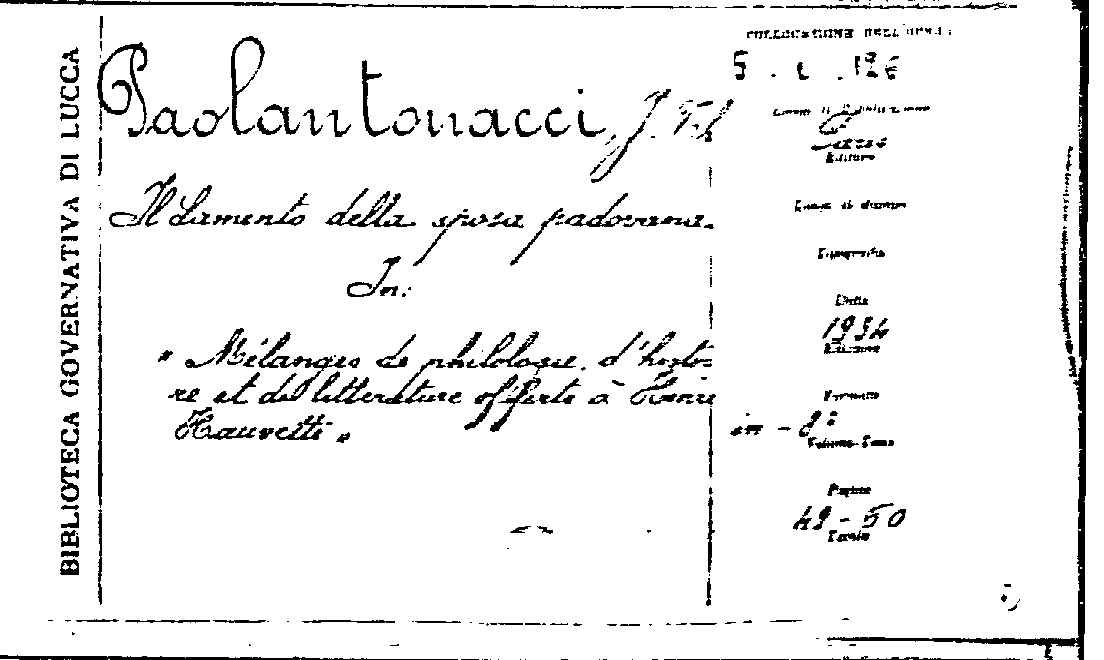 BIBLIOTECA GOVERNATIVA DI LUCCA
Paolantonacci, J. Th.
Il Lamento della sposa padovana.
In:
"Mélanges de philologie, d'histoi-
re et de litterature offerts à Henri
Hauvette"
COLLOCAZIONE DELL'OPERA
5. . 126
Luogo di Pubblicazione
Paris
Editore
Luogo di stampa
Tipografia
Data
1934
Edizione
Formato
in - 8°
Volume-Tomo
Pagine
49 - 50